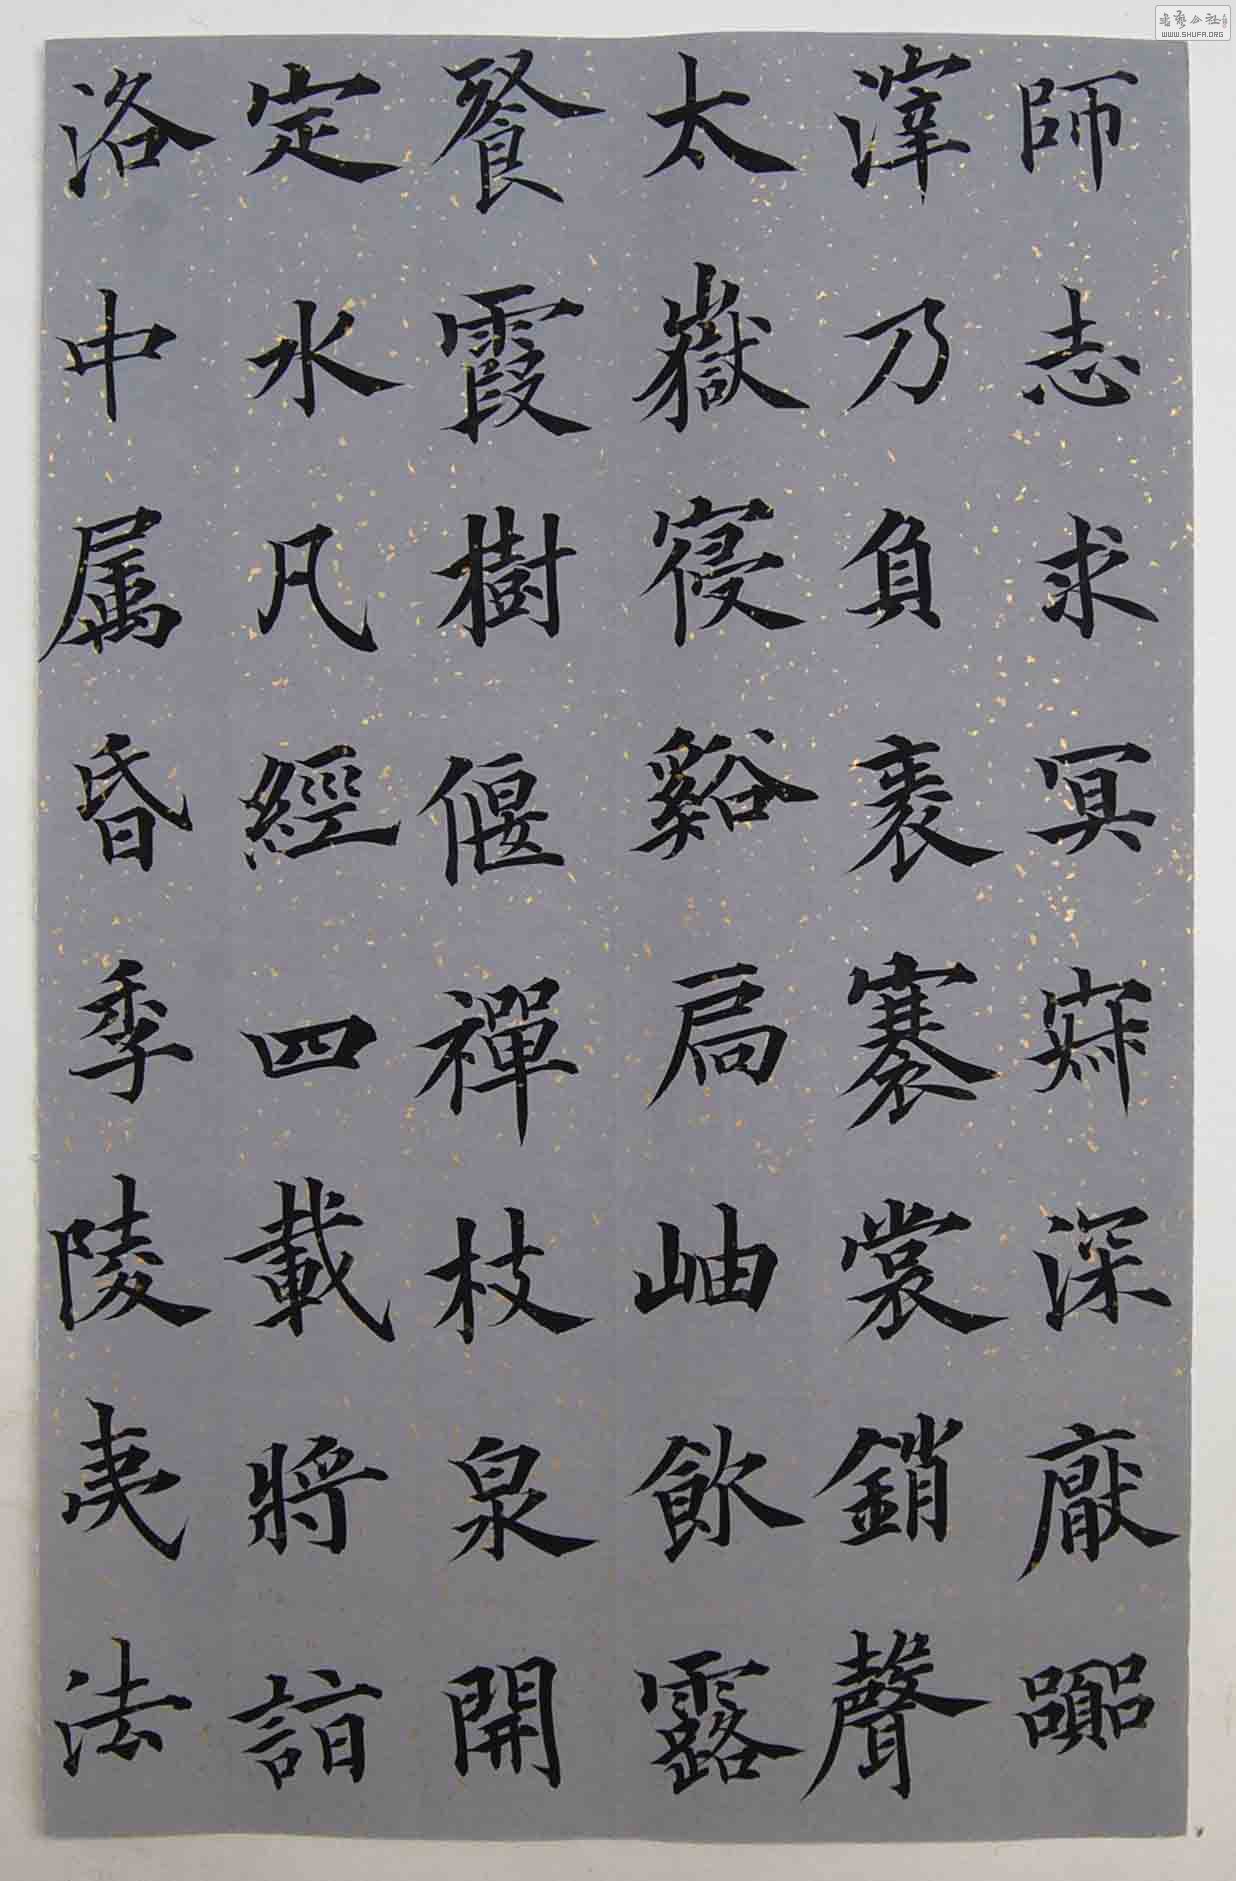 師志求冥寂深厭囂
滓乃負袠褰裳銷聲
太嶽寢谿扃岫飲露
餐霞樹偃禪枝泉開
定水凡經四載將詣
洛中属昏季陵夷法
WWW.SHUFA.ORG